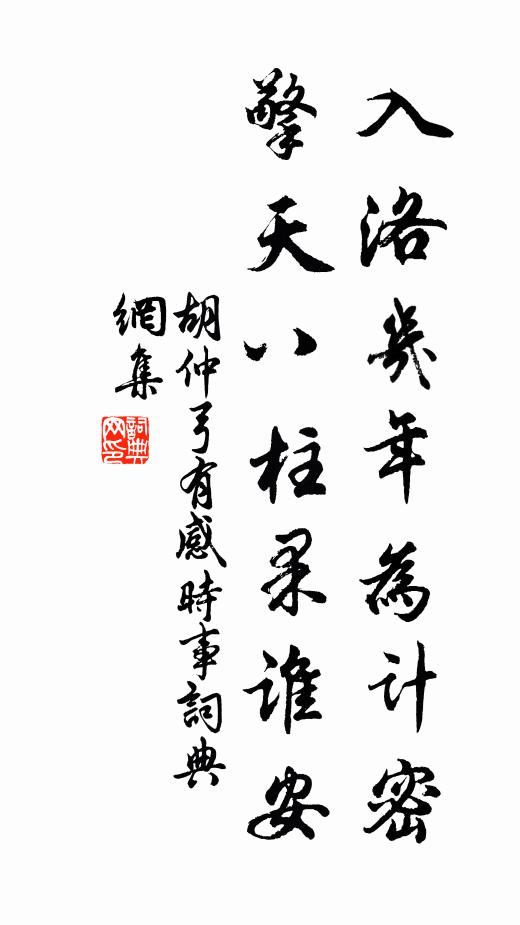 入洛幾年為計密
擎天八柱果誰安
胡仲弓有感時事詞典
網集
詞典網印